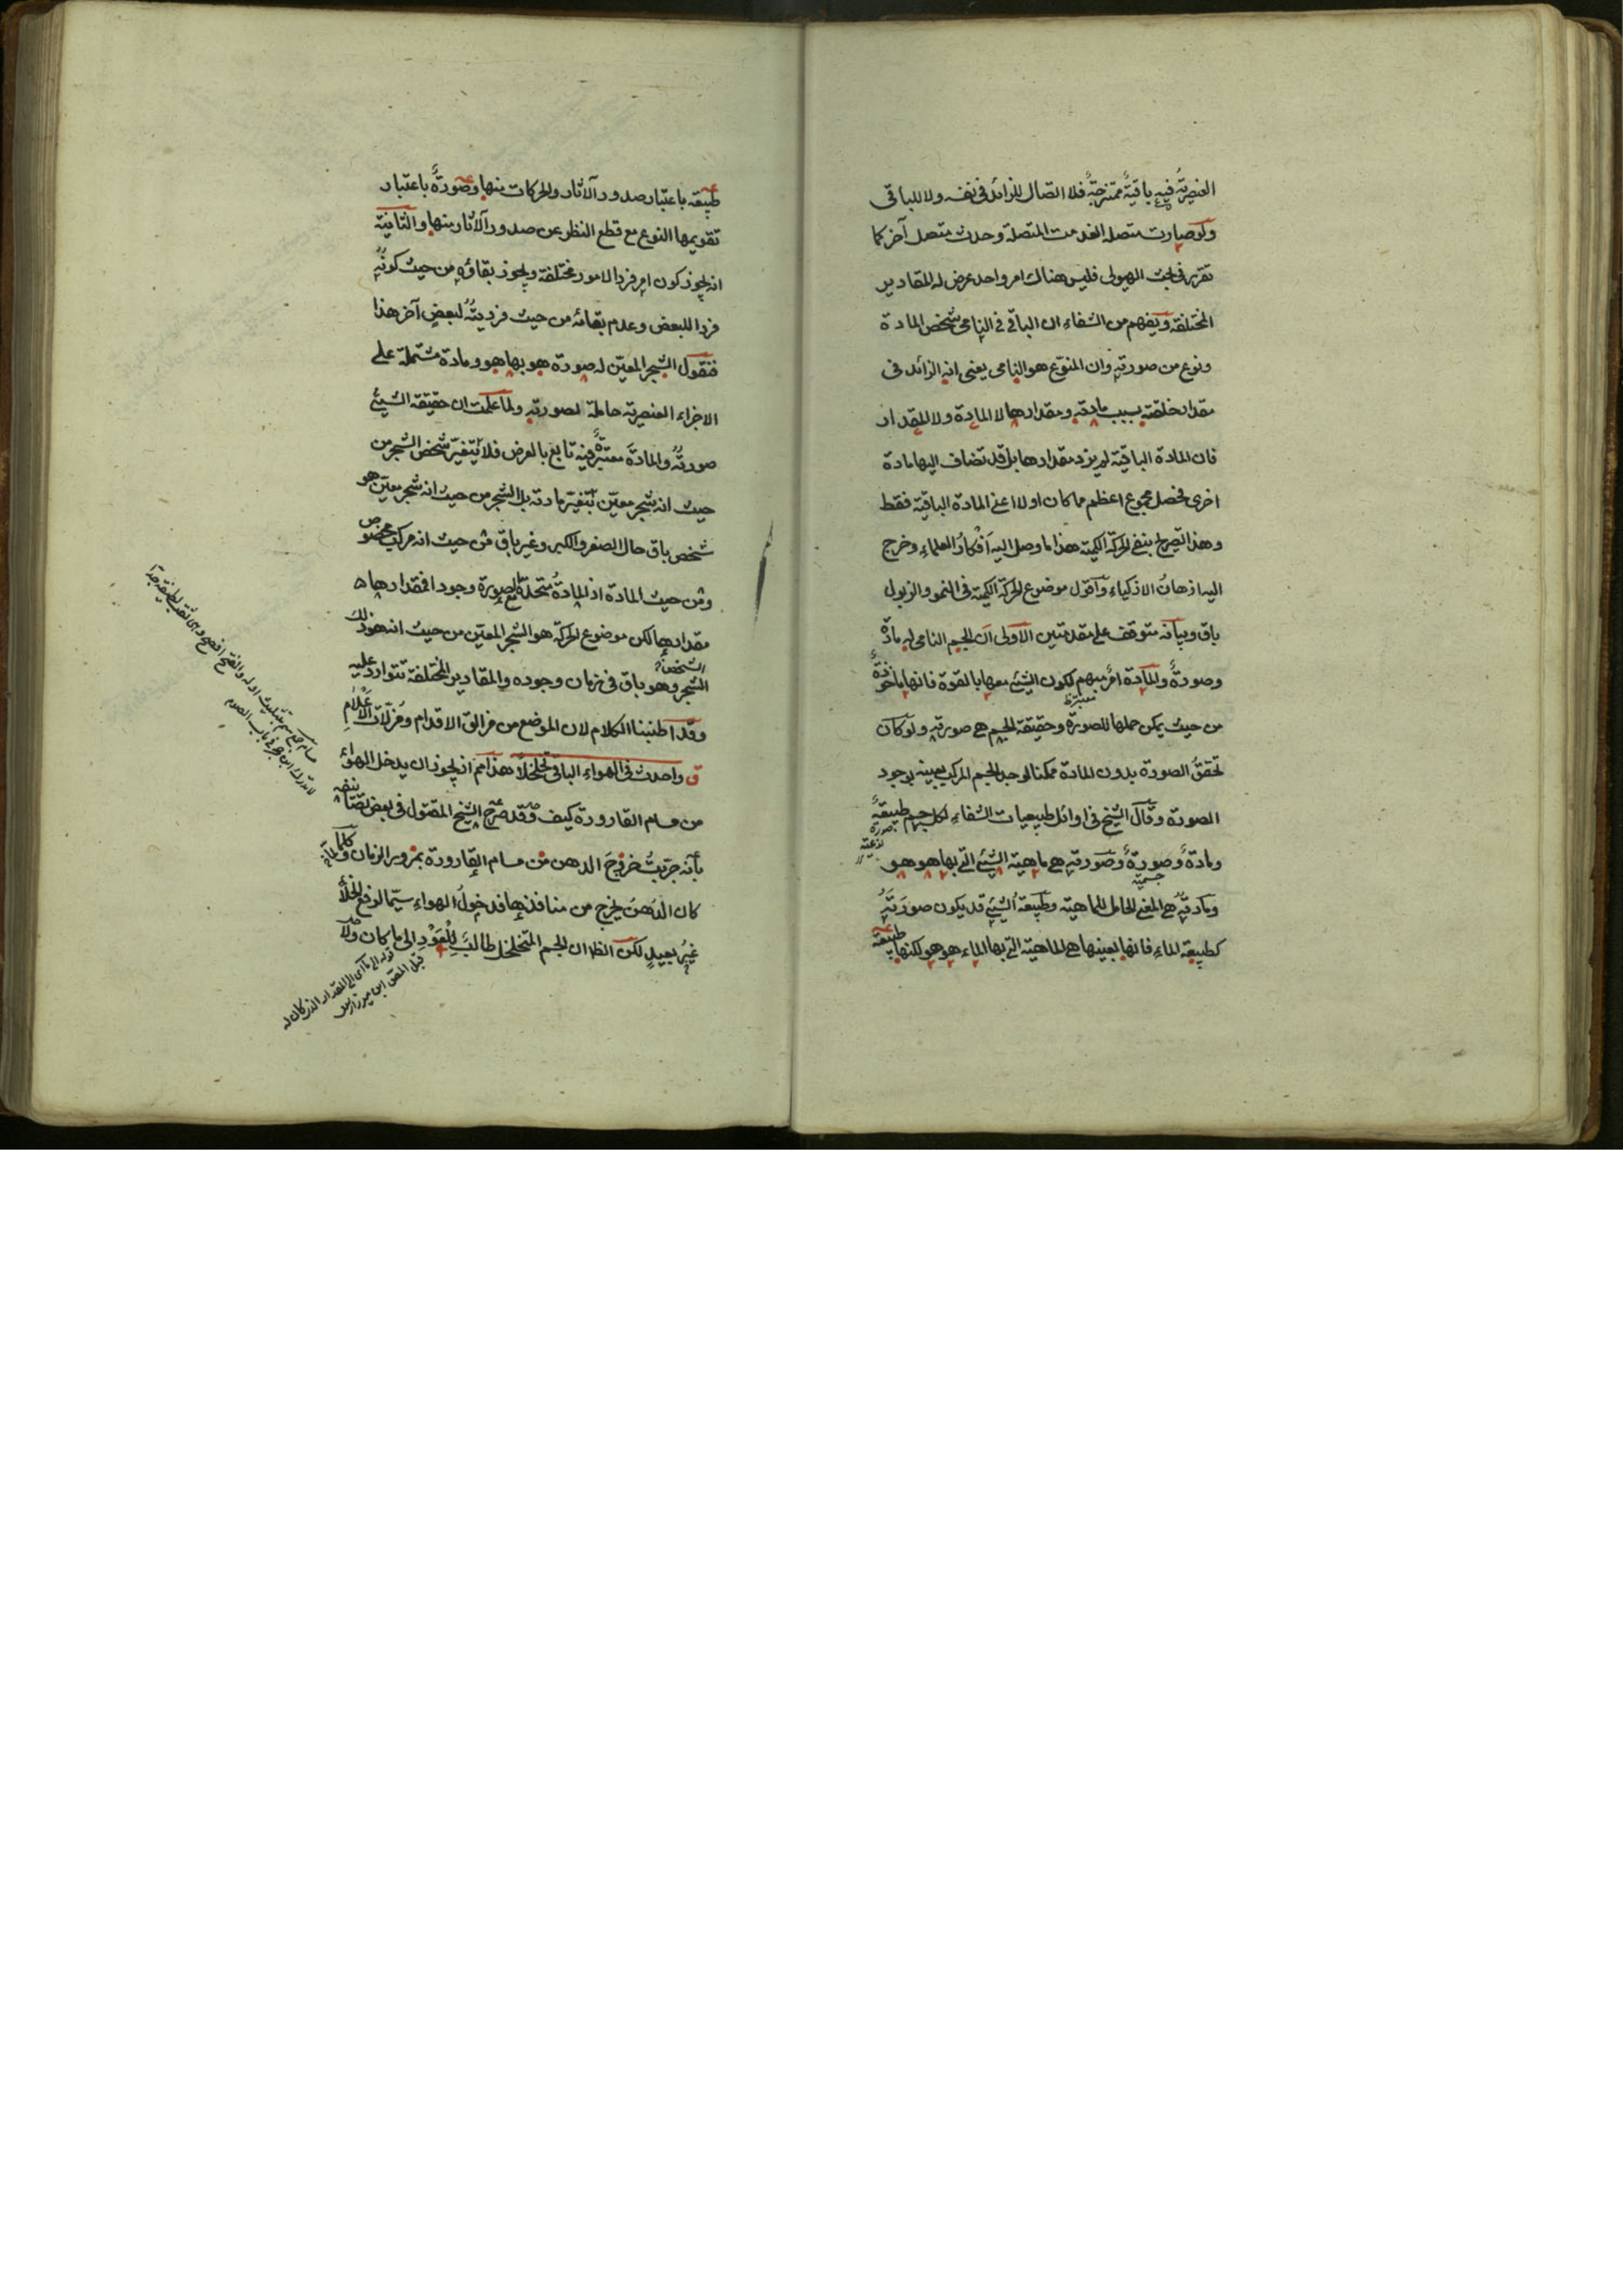 العنصرية فيه باقيةٌ ممتزجةٌ فلا اتصال للزائد في نفسه ولا للباقي
ولو صارت متصلة انعدمت المتصلة وحدث متصل آخر كما
تقرر في بحث الهيولى فليس هناك امر واحد عرض له المقادير
المختلفة ويفهم من الشفاء ان الباقي في النامي شخص المادة
ونوع من صورته وان المنوع هو النامي يعني انه الزائد في
مقدار خلقته بسبب مادته ومقدارها لا المادة ولا المقدار
فان المادة الباقية لم يزد مقدارها بل قد تضاف اليها مادة
اخرى فحصل مجموع اعظم مما كان اولا اعني المادة الباقية فقط
وهذا تصريح بنفي الحركة الكمية هذا ما وصل اليه أفكارُ العلماء وخرج
اليه اذهان الاذكياء وأقول موضوع الحركة الكمية في النمو والذبول
باق وبيانه متوقف على مقدمتين الاولى ان الجسم النامي له مادّة
وصورةٌ والمادة امرٌ مبهم لكون الشيء معها بالقوة فانها مأخوذةٌ
من حيث يمكن حملها للصورة وحقيقة الجسم هي صورته ولو كان
تحقق الصورة بدون المادة ممكنا لوجد الجسم المركب بعينه بوجود
الصورة وقال الشيخ في اوائل طبيعيات الشفاء لكل جسم طبيعةٌ
صورة نوعية
ومادةٌ وصورةٌ وصورته هي ماهية الشيء التي بها هو هو
جسمية
ومادته هي المعنى الحامل للماهية وطبيعة الشيء قد يكون صورَتَه
كطبيعة الماء فانها بعينها هي الماهية التي بها الماء هو هو لكنها
طبيعة
طبيعة باعتبار صدور الآثار والحركات منها وصورةٌ باعتبار
تقويمها النوع مع قطع النظر عن صدور الآثار منها والثانية
انه يجوز كون امر فردا لامور مختلفة ويجوز بقاؤه من حيث كونُه
فردا للبعض وعدم بقائه من حيث فرديتُه لبعضٍ آخر هذا
فنقول الشجر المعيّن له صورة هو بها هو ومادة مشتملة على
الاجزاء العنصرية حاملة لصورته ولما علمت ان حقيقة الشيء
صورتُه والمادة معتبرةٌ فيه تابع بالعرض فلا يتغيّر شخص الشجر من
حيث انه شجر معيّن بتغيّر مادته بل الشجر من حيث انه شجر معيّن هو
شخص باق حال الصغر والكبر وغير باق من حيث انه مركب مخصوص
ومن حيث المادة اذ المادةُ متحدة مع الصورة وجودا فمقدارها
مقدارها لكن موضوع الحركة هو الشجر المعيّن من حيث انه هو ذلك
الشجر وهو باق في زمان وجوده والمقادير المختلفة تتوارد عليه
وقد اطنبنا الكلام لان الموضع من مزالق الاقدام ومزلّات الأعْلَامِ
ق واحدث في الهواء الباقي تخلخلا هذا مم اذ يجوز ان يدخل الهواءُ
من مسام القارورة كيف وقد صرح الشيخ المقتول في بعض تصانيفه
بأنه جرّبتُ خروجَ الدهن من مسام القارورة بمرور الزمان وكلما
كان الدّهنَ يخرج من منافذها فدخولُ الهواءِ سيّما لدفع الخلأ
غيرُ بعيدٍ لكن الظ ان الجسم المتخلخل طالبٌ لِلْعَوْدِ الى ما كان ولا
قوله الى ما كان اي الى المقدار الذي كان له
قبل